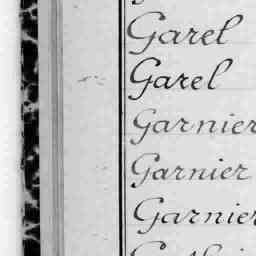 Garel
Garel
Garnier
Garnier
Garnier